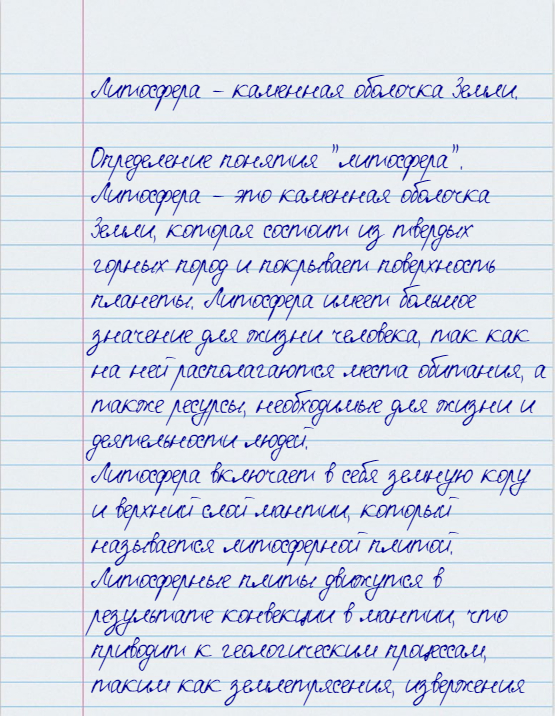 Литосфера – каменная оболочка Земли.
Определение понятия "литосфера".
Литосфера – это каменная оболочка
Земли, которая состоит из твердых
горных пород и покрывает поверхность
планеты. Литосфера имеет большое
значение для жизни человека, так как
на ней располагаются места обитания, а
также ресурсы, необходимые для жизни и
деятельности людей.
Литосфера включает в себя земную кору
и верхний слой мантии, который
называется литосферной плитой.
Литосферные плиты движутся в
результате конвекции в мантии, что
приводит к геологическим процессам,
таким как землетрясения, извержения